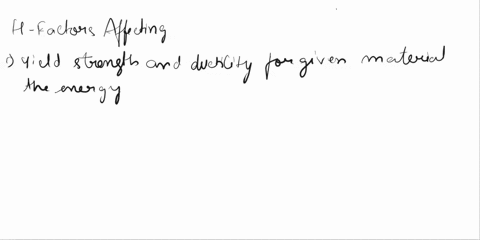 H-Factors Affecting
1) Yield strength and ductility for given material
the energy